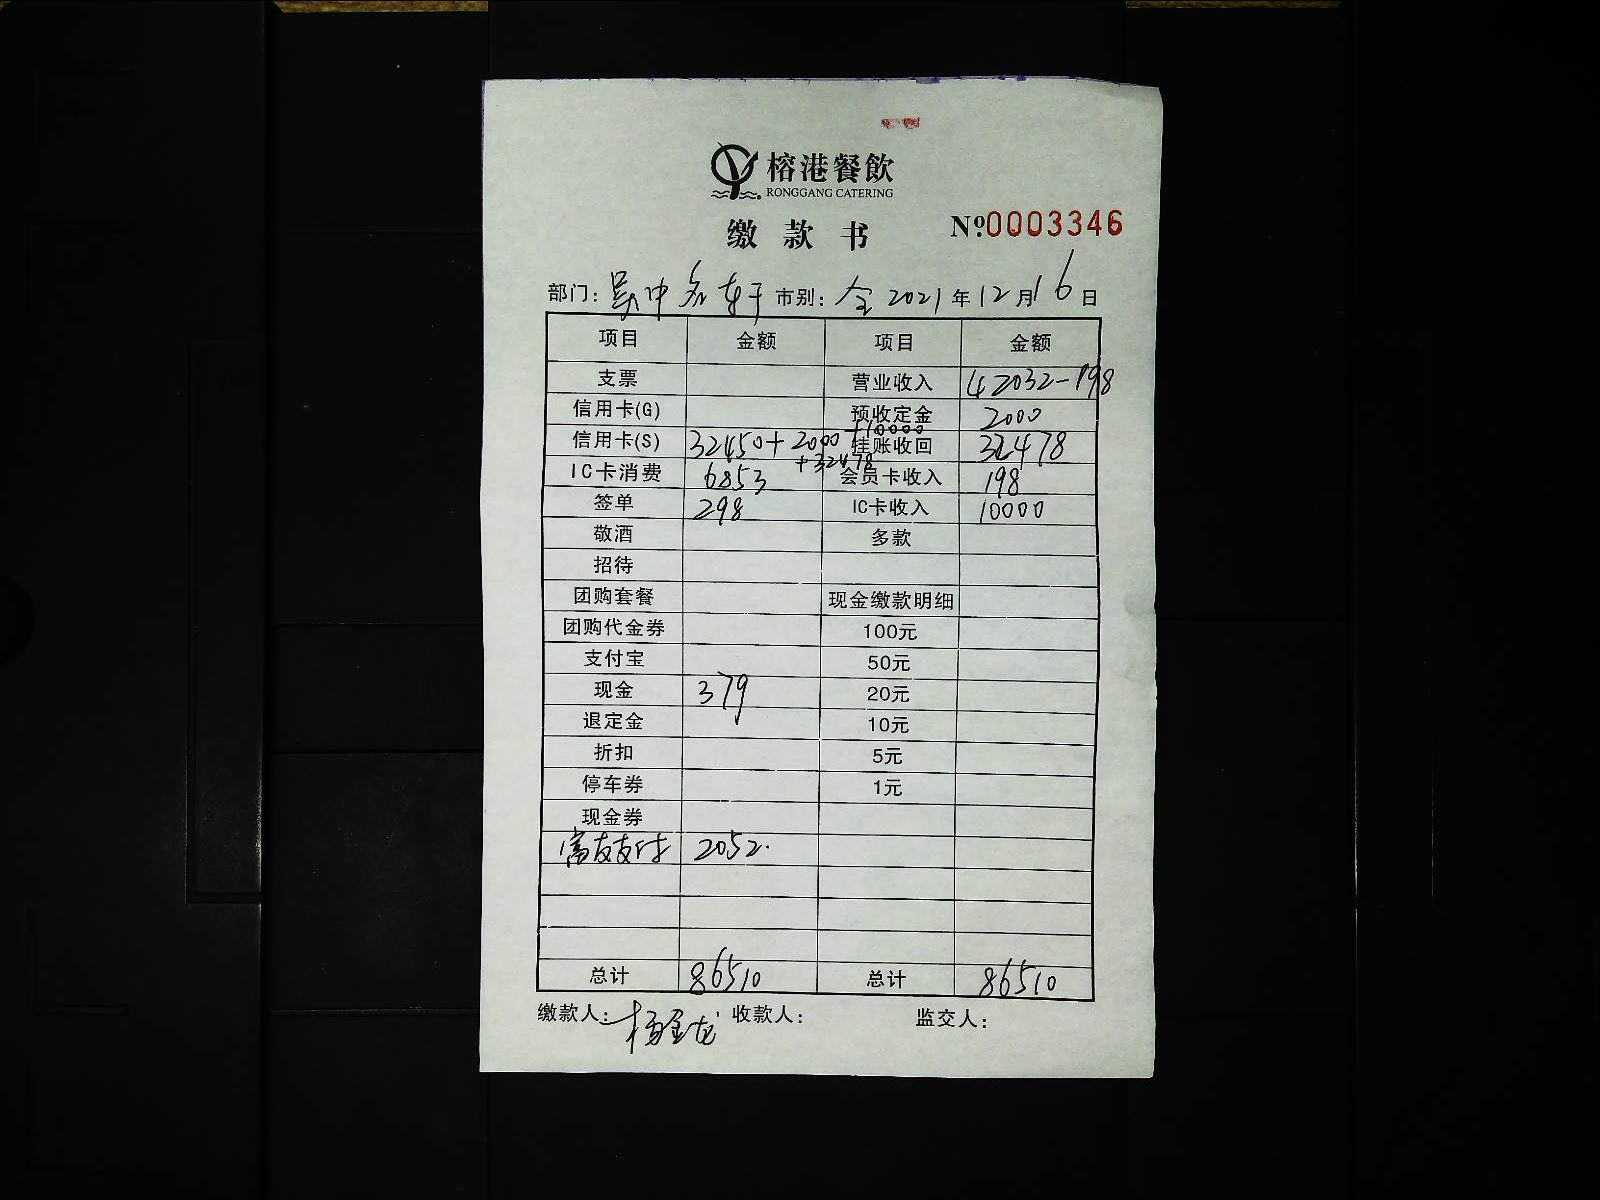 榕港餐飲
RONGGANG CATERING
缴款书
№:0003346
部门: 吴中名轩 市别: 全 2021年12月16日
项目 金额 项目 金额
支票 营业收入 42032-198
信用卡(G) 预收定金 2000
信用卡(S) 32450+2000+10000+32478 挂账收回 32478
IC卡消费 6853 会员卡收入 198
签单 298 IC卡收入 10000
敬酒 多款
招待
团购套餐 现金缴款明细
团购代金券 100元
支付宝 50元
现金 379 20元
退定金 10元
折扣 5元
停车券 1元
现金券
富友支付 2052.
总计 86510 总计 86510
缴款人: 杨金龙 收款人: 监交人: